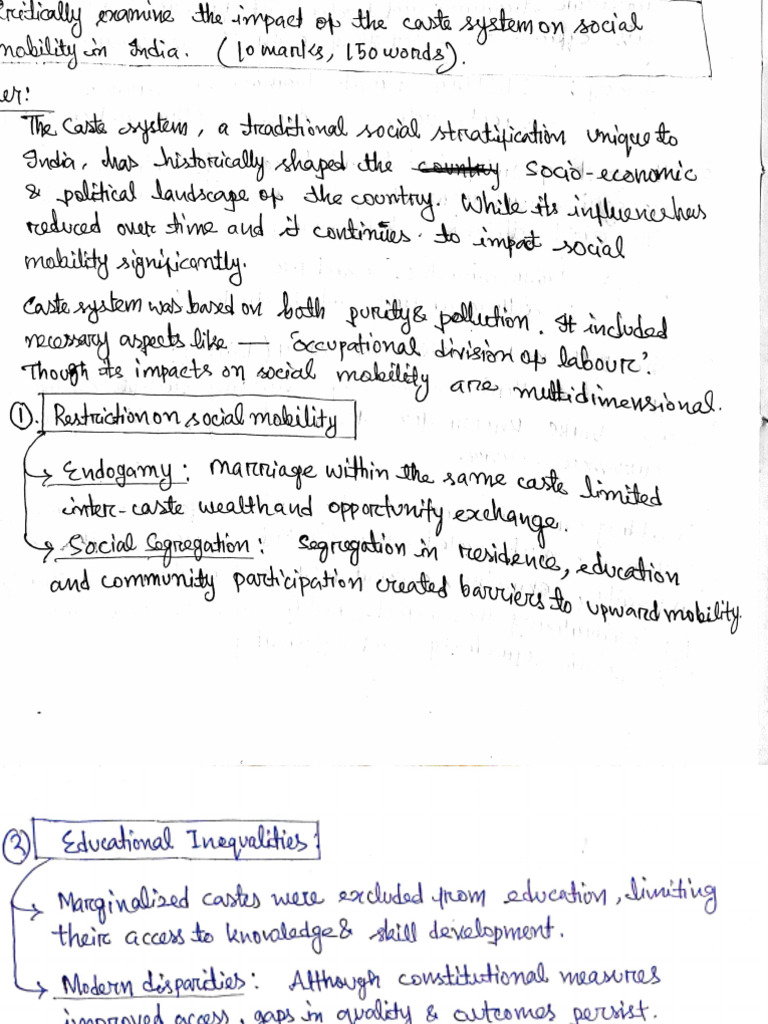 Critically examine the impact of the caste system on social
mobility in India. (10 marks, 150 words).
er:
The Caste system, a traditional social stratification unique to
India, has historically shaped the country socio-economic
& political landscape of the country. While its influence has
reduced over time and it continues to impact social
mobility significantly.
Caste system was based on both purity & pollution. It included
necessary aspects like — Occupational division of labour'.
Though its impacts on social mobility are multidimensional.
①. Restriction on social mobility
Endogamy: Marriage within the same caste limited
inter-caste wealth and opportunity exchange.
Social Segregation: Segregation in residence, education
and community participation created barriers to upward mobility.
③ Educational Inequalities:
Marginalized castes were excluded from education, limiting
their access to knowledge & skill development.
Modern disparities: Although constitutional measures
improved access, gaps in quality & outcomes persist.